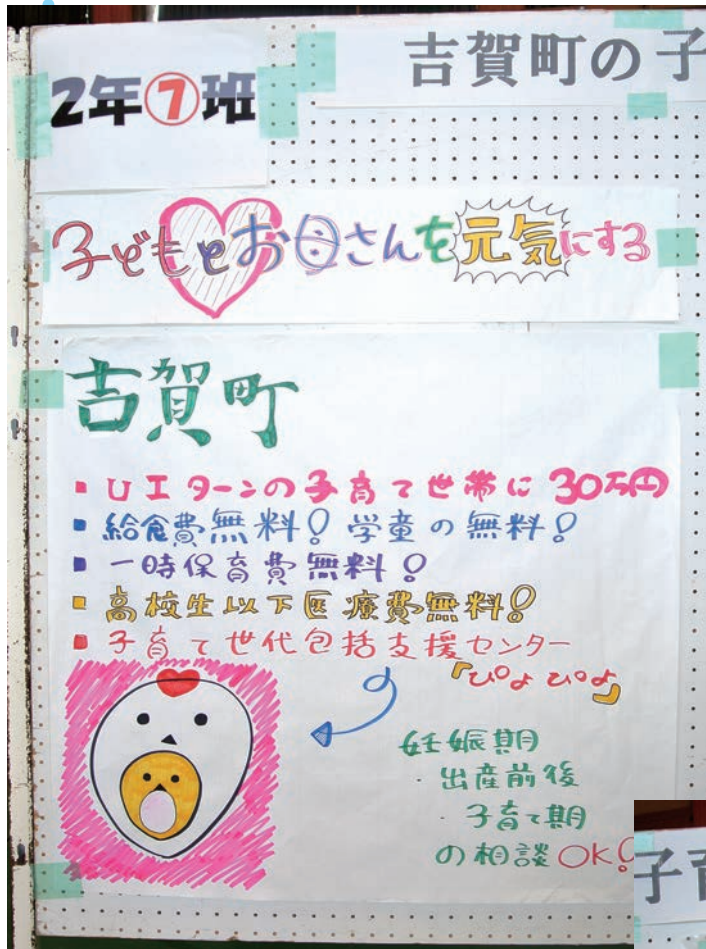 2年⑦班
吉賀町の子
子どもとお母さんを元気にする
吉賀町
■ UIターンの子育て世帯に 30万円
■ 給食費無料! 学童の無料!
■ 一時保育費無料!
■ 高校生以下医療費無料!
■ 子育て世代包括支援センター
『ぴよぴよ』
妊娠期
・出産前後
・子育て期
の相談OK!
子育